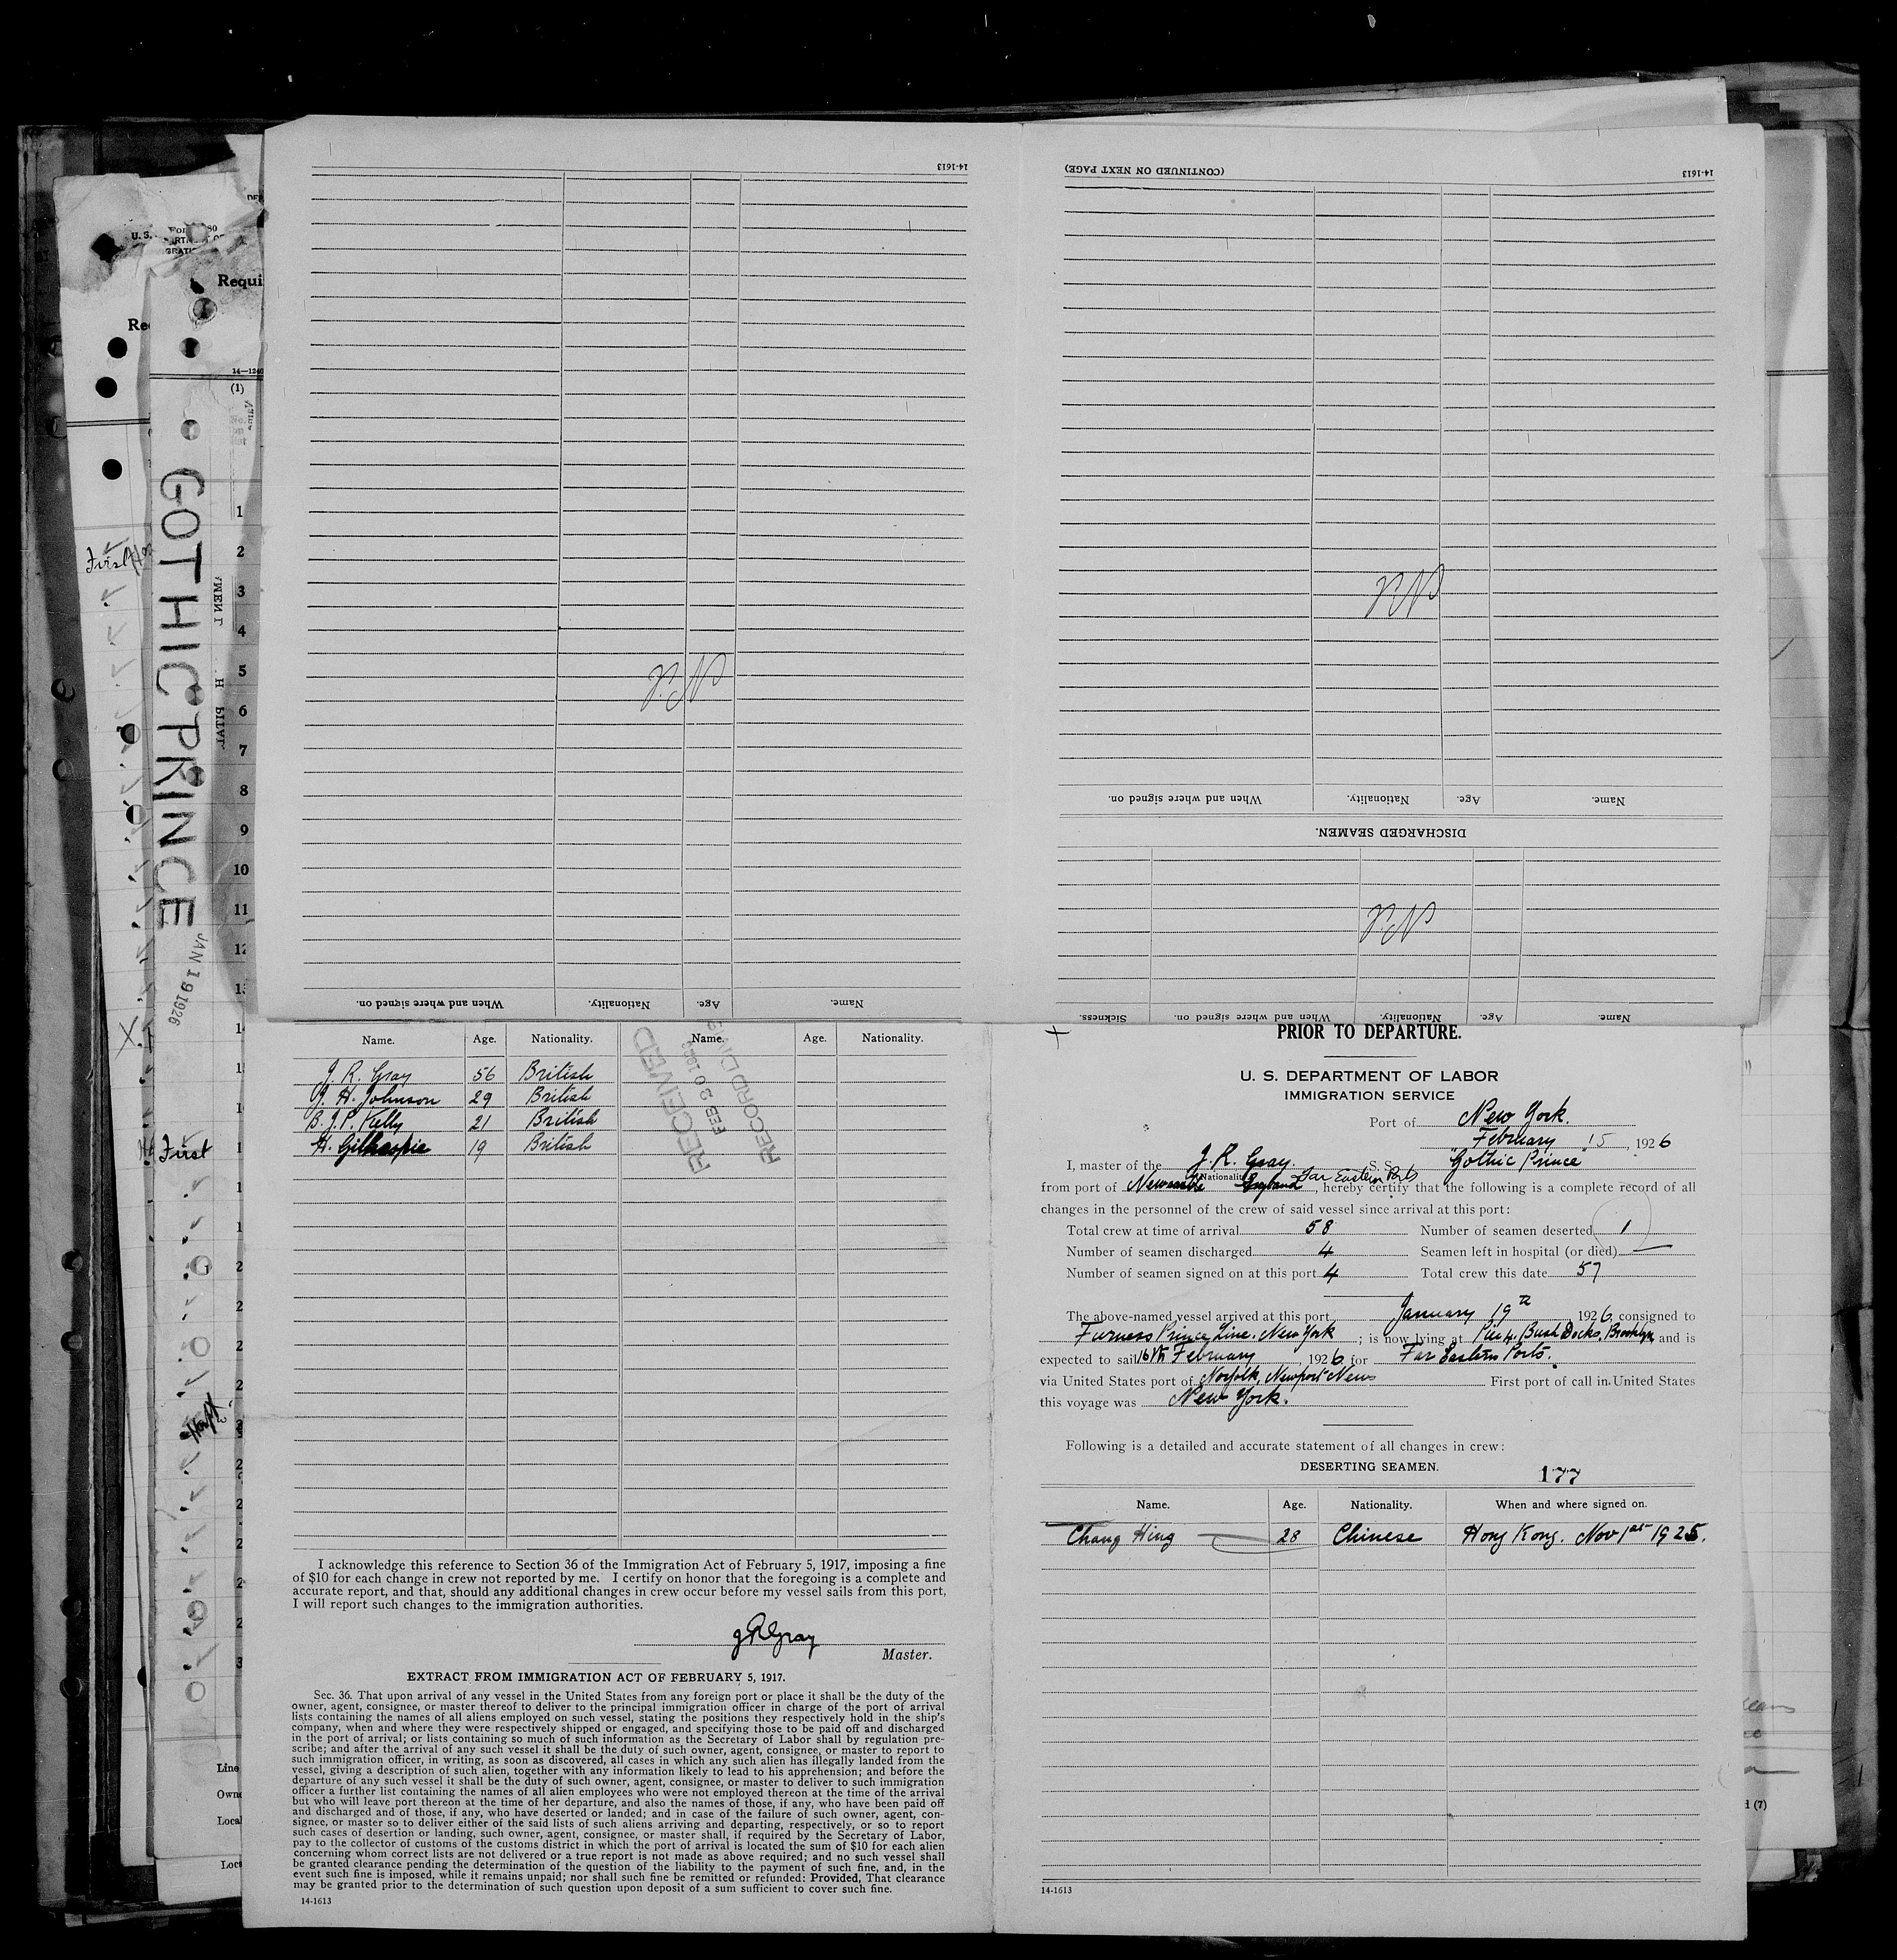 14-1613
Nil
When and where signed on.
Nationality.
Age.
Name.
(CONTINUED ON NEXT PAGE)
14-1613
Nil
When and where signed on.
Nationality.
Age.
Name.
DISCHARGED SEAMEN.
Nil
Sickness.
When and where signed on.
Nationality.
Age.
Name.
U. S.
Requi
14—1240
(1)
First
GOTHIC PRINCE
JAN 19 1926
First
1
2
3
4
5
6
7
8
9
10
11
12
Line
Owne
Local
Loca
(7)
Name. Age. Nationality. Name. Age. Nationality.
J. R. Gray 56 British
J. H. Johnson 29 British
B. J. P. Kelly 21 British
H. Gillhespie 19 British
RECEIVED
FEB 20 1926
RECORD DIVISION
I acknowledge this reference to Section 36 of the Immigration Act of February 5, 1917, imposing a fine
of $10 for each change in crew not reported by me. I certify on honor that the foregoing is a complete and
accurate report, and that, should any additional changes in crew occur before my vessel sails from this port,
I will report such changes to the immigration authorities.
J R Gray
Master.
EXTRACT FROM IMMIGRATION ACT OF FEBRUARY 5, 1917.
Sec. 36. That upon arrival of any vessel in the United States from any foreign port or place it shall be the duty of the
owner, agent, consignee, or master thereof to deliver to the principal immigration officer in charge of the port of arrival
lists containing the names of all aliens employed on such vessel, stating the positions they respectively hold in the ship's
company, when and where they were respectively shipped or engaged, and specifying those to be paid off and discharged
in the port of arrival; or lists containing so much of such information as the Secretary of Labor shall by regulation pre-
scribe; and after the arrival of any such vessel it shall be the duty of such owner, agent, consignee, or master to report to
such immigration officer, in writing, as soon as discovered, all cases in which any such alien has illegally landed from the
vessel, giving a description of such alien, together with any information likely to lead to his apprehension; and before the
departure of any such vessel it shall be the duty of such owner, agent, consignee, or master to deliver to such immigration
officer a further list containing the names of all alien employees who were not employed thereon at the time of the arrival
but who will leave port thereon at the time of her departure, and also the names of those, if any, who have been paid off
and discharged and of those, if any, who have deserted or landed; and in case of the failure of such owner, agent, con-
signee, or master so to deliver either of the said lists of such aliens arriving and departing, respectively, or so to report
such cases of desertion or landing, such owner, agent, consignee, or master shall, if required by the Secretary of Labor,
pay to the collector of customs of the customs district in which the port of arrival is located the sum of $10 for each alien
concerning whom correct lists are not delivered or a true report is not made as above required; and no such vessel shall
be granted clearance pending the determination of the question of the liability to the payment of such fine, and, in the
event such fine is imposed, while it remains unpaid; nor shall such fine be remitted or refunded: Provided, That clearance
may be granted prior to the determination of such question upon deposit of a sum sufficient to cover such fine.
14-1613
PRIOR TO DEPARTURE.
U. S. DEPARTMENT OF LABOR
IMMIGRATION SERVICE
Port of New York.
February 15, 1926
I, master of the J. R. Gray. S. S. "Gothic Prince"
(Nationality)
from port of Newcastle England Far Eastern Ports, hereby certify that the following is a complete record of all
changes in the personnel of the crew of said vessel since arrival at this port:
Total crew at time of arrival 58 Number of seamen deserted 1
Number of seamen discharged 4 Seamen left in hospital (or died) —
Number of seamen signed on at this port 4 Total crew this date 57
The above-named vessel arrived at this port January 19th, 1926, consigned to
Furness Prince Line. New York; is now lying at Pier 4. Bush Docks, Brooklyn and is
expected to sail 16th February, 1926 for Far Eastern Ports.
via United States port of Norfolk, Newport News First port of call in United States
this voyage was New York.
Following is a detailed and accurate statement of all changes in crew:
DESERTING SEAMEN.
177
Name. Age. Nationality. When and where signed on.
Chang Hing 28 Chinese Hong Kong. Nov 1st 1925.
14-1613